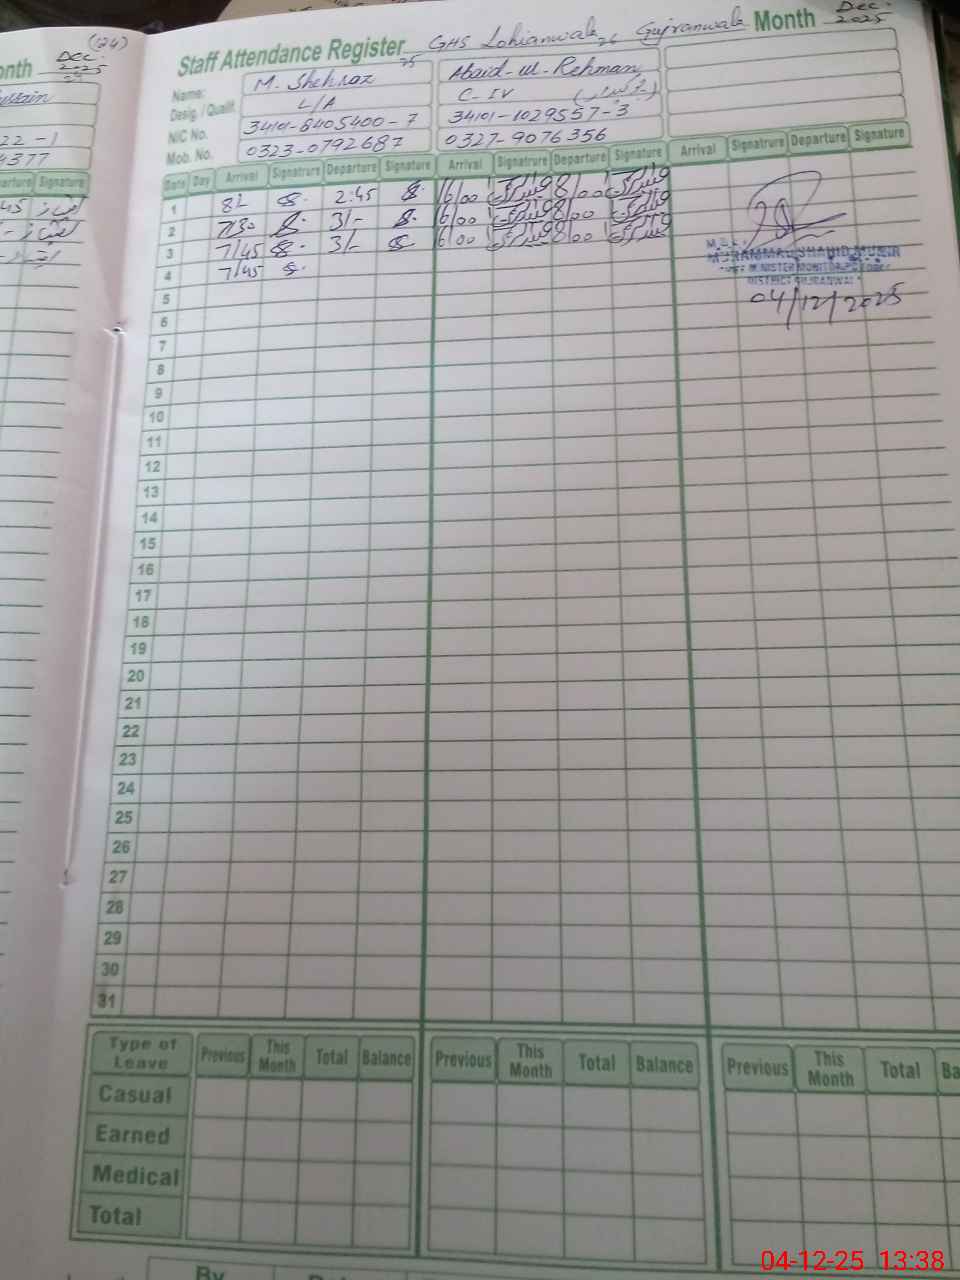 (24)
onth Dec. 2025
22 - 1
4377
arture Signature
Staff Attendance Register GHS Lohianwala Gujranwala Month Dec. 2025
25 26
Name: M. Shehraz Abaid-ul-Rehman
Desig. / Qualif. L/A C-IV
NIC No. 34101-8405400-7 34101-1029557-3
Mob. No. 0323-0792687 0327-9076356
Date Day Arrival Signatrure Departure Signature Arrival Signatrure Departure Signature Arrival Signatrure Departure Signature
1 8/- 2:45 16/00 8/00
2 7/30 3/- 16/00 8/00
3 7/45 3/- 16/00 8/00
4 7/45
MUHAMMAD SHAHID MUNIR
DISTRICT GUJRANWALA
04/12/2025
5
6
7
8
9
10
11
12
13
14
15
16
17
18
19
20
21
22
23
24
25
26
27
28
29
30
31
Type of Leave Previous This Month Total Balance Previous This Month Total Balance Previous This Month Total Ba
Casual
Earned
Medical
Total
By
04-12-25 13:38